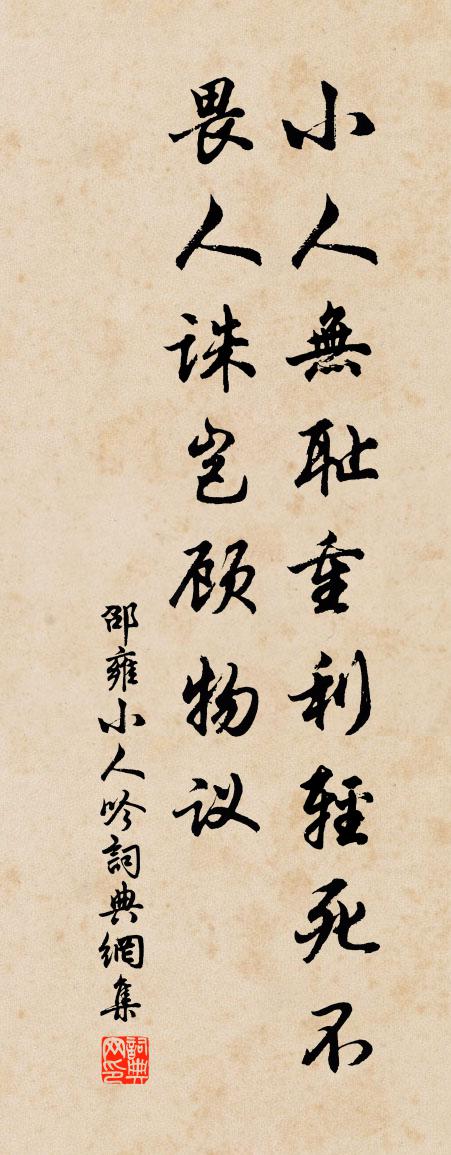 小人無耻重利輕死不
畏人诛岂顾物议
邵雍小人吟詞典網集
詞典网印